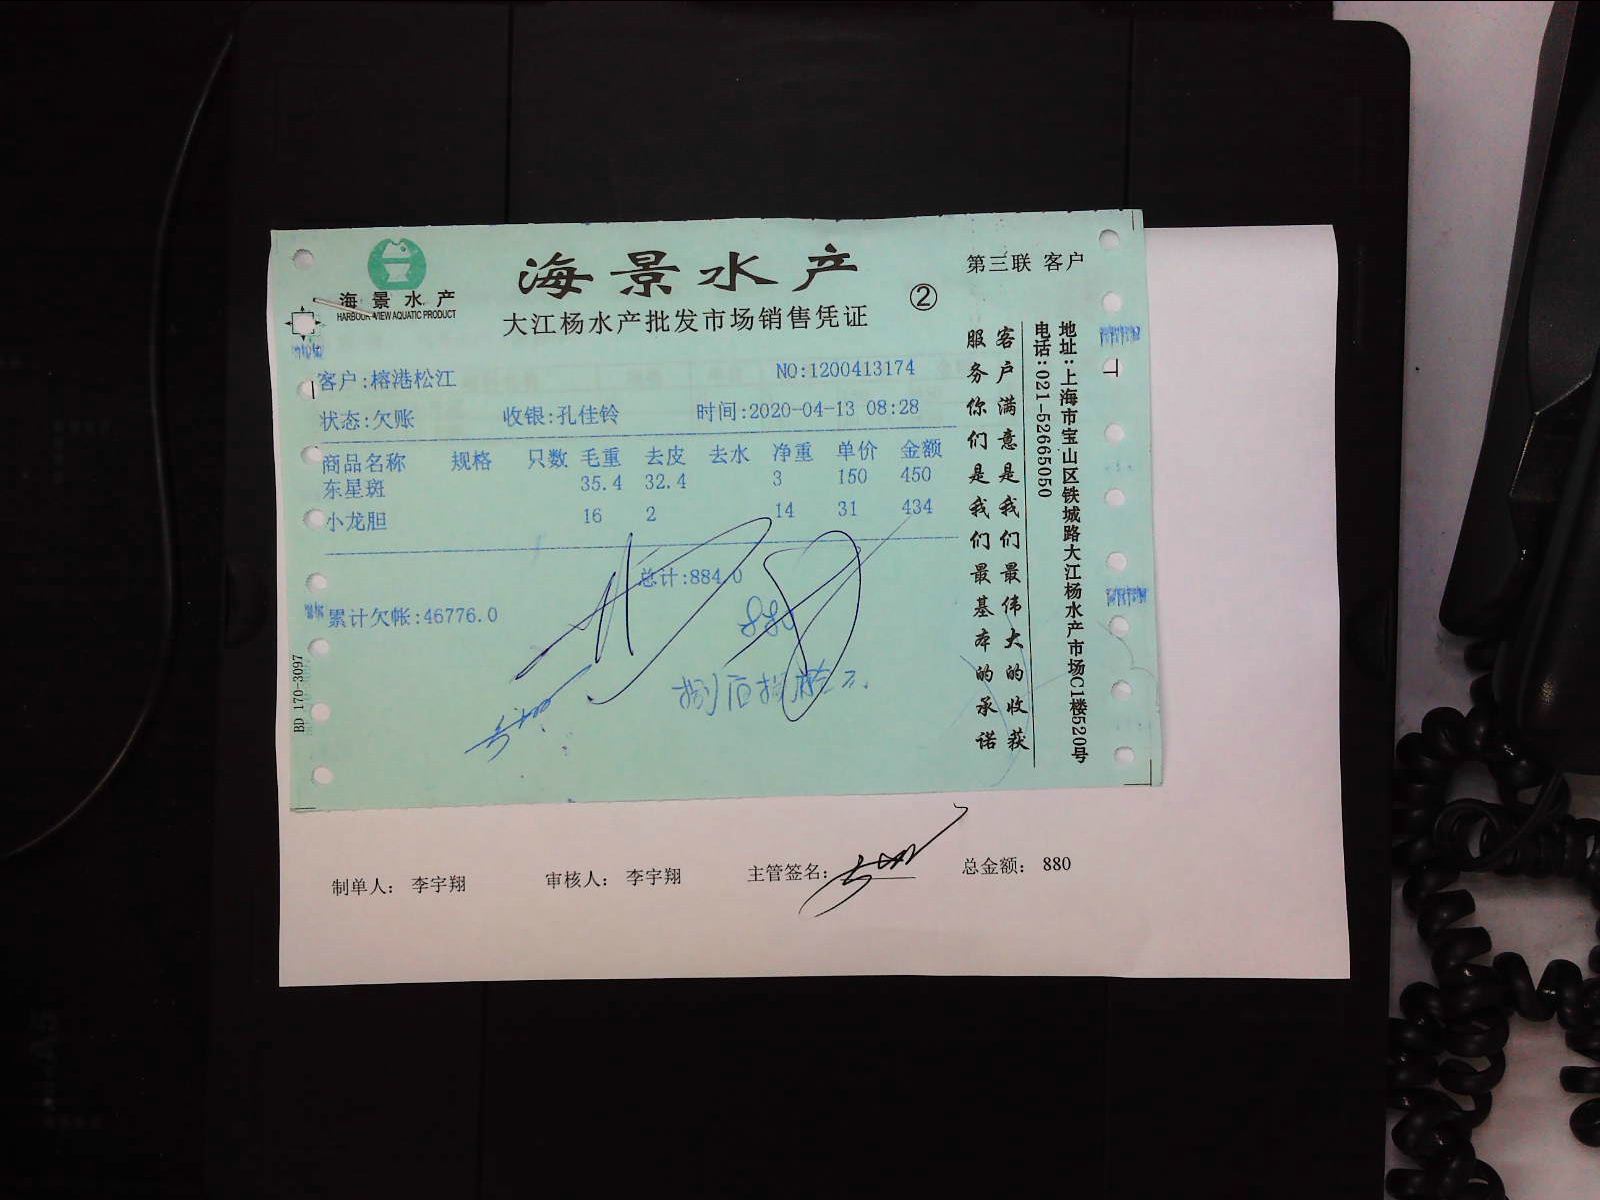 海景水产
HARBOUR VIEW AQUATIC PRODUCT
海景水产
大江杨水产批发市场销售凭证
②
第三联 客户
客户:榕港松江
NO:1200413174
状态:欠账 收银:孔佳铃 时间:2020-04-13 08:28
商品名称 规格 只数 毛重 去皮 去水 净重 单价 金额
东星斑 35.4 32.4 3 150 450
小龙胆 16 2 14 31 434
总计:884.0
880
累计欠帐:46776.0
BD 170-3097
客户满意是我们最伟大的收获
服务你们是我们最基本的承诺
地址:上海市宝山区铁城路大江杨水产市场C1楼520号
电话:021-52665050
制单人: 李宇翔 审核人: 李宇翔 主管签名: 总金额: 880